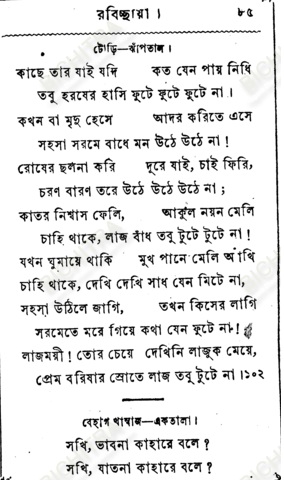 রবিচ্ছায়া। ৮৫
টোড়ি—ঝাঁপতাল।
কাছে তার যাই যদি কত যেন পায় নিধি
তবু হরষের হাসি ফুটে ফুটে ফুটে না।
কখন বা মৃদু হেসে আদর করিতে এসে
সহসা সরমে বাধে মন উঠে উঠে না!
রোষের ছলনা করি দূরে যাই, চাই ফিরি,
চরণ বারণ তরে উঠে উঠে উঠে না;
কাতর নিশ্বাস ফেলি, আকুল নয়ন মেলি
চাহি থাকে, লাজ বাঁধ তবু টুটে টুটে না!
যখন ঘুমায়ে থাকি মুখ পানে মেলি আঁখি
চাহি থাকে, দেখি দেখি সাধ যেন মিটে না,
সহসা উঠিলে জাগি, তখন কিসের লাগি
সরমেতে মরে গিয়ে কথা যেন ফুটে না!
লাজময়ী! তোর চেয়ে দেখিনি লাজুক মেয়ে,
প্রেম বরিষার স্রোতে লাজ তবু টুটে না।১০২
বেহাগ খাম্বাজ—একতালা।
সখি, ভাবনা কাহারে বলে?
সখি, যাতনা কাহারে বলে?